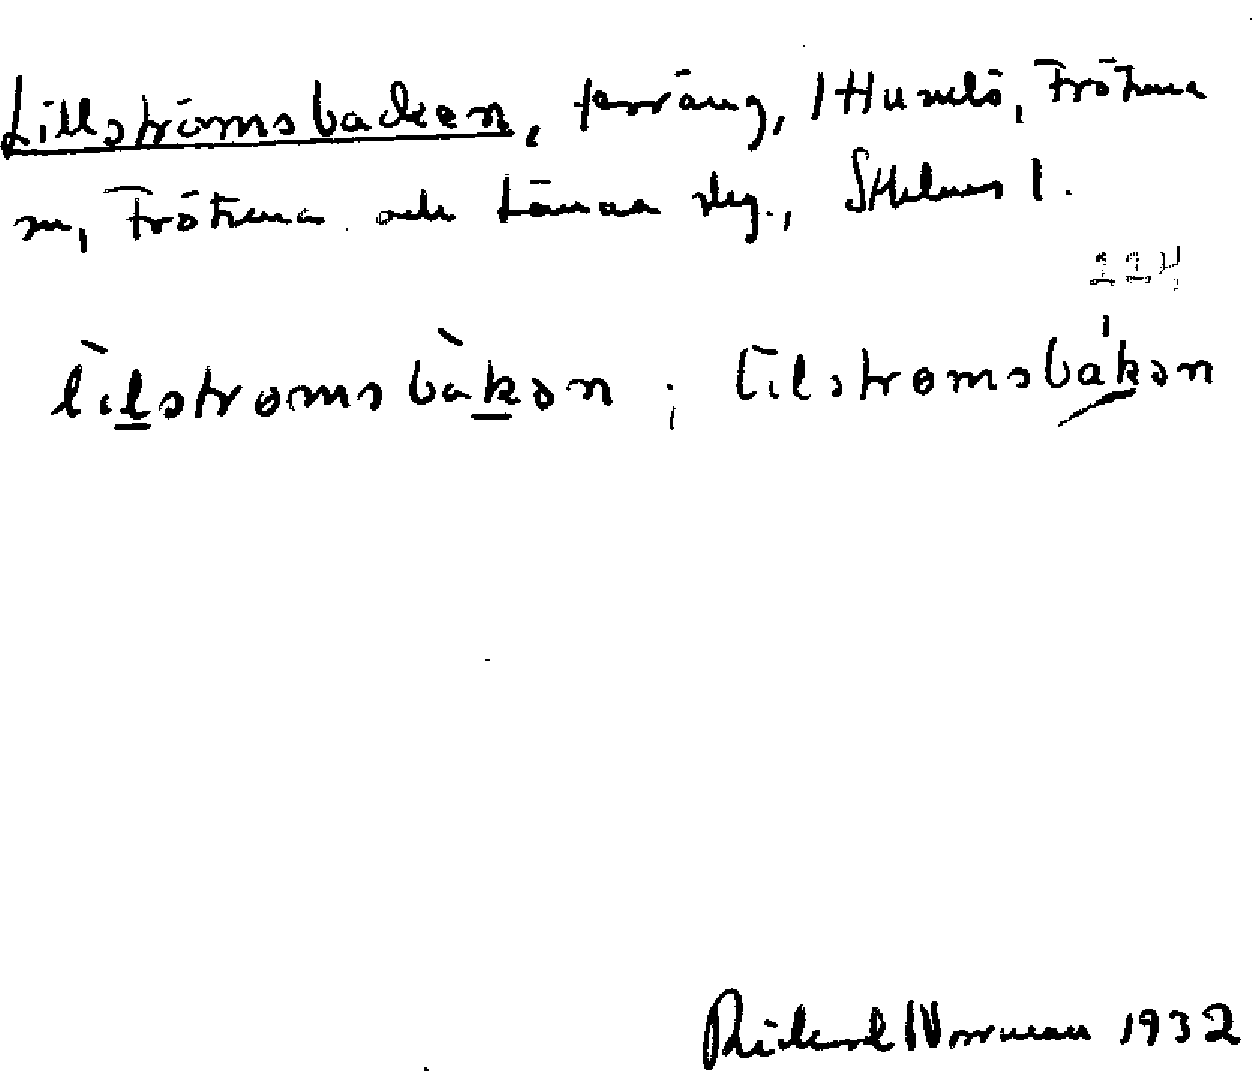 Lillströmsbacken, terräng, Humlö, Frötuna
sn, Frötuna och Länna skg., Sthlms l.
224
lìlstrømsbàkən ; lilstrømsbákən
Rickard Norrman 1932